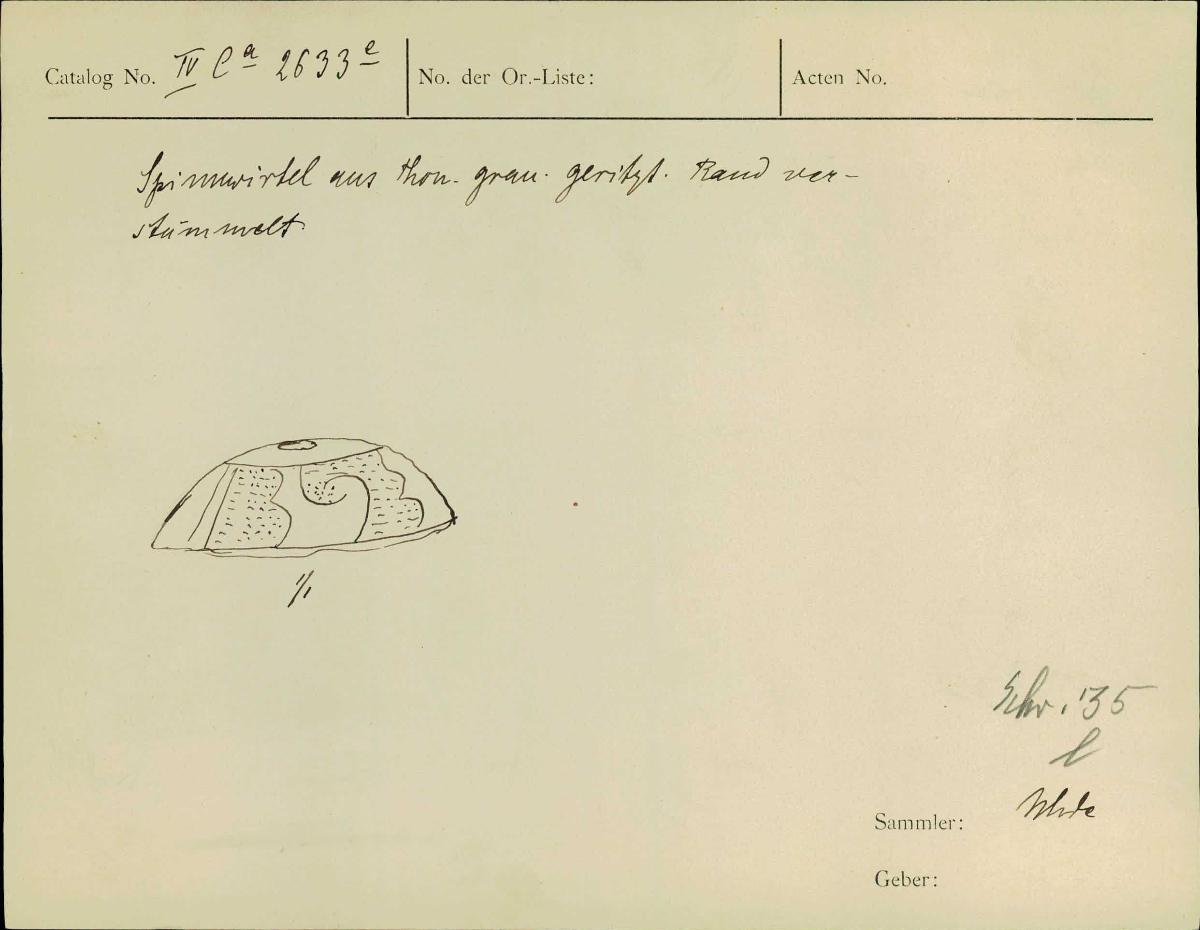 Catalog No. IV Ca 2633e No. der Or.-Liste: Acten No.
Spinnwirtel aus Thon. grau. geritzt. Rand ver-
stümmelt.
1/1
Schr. 35
l
Sammler: Uhde
Geber: